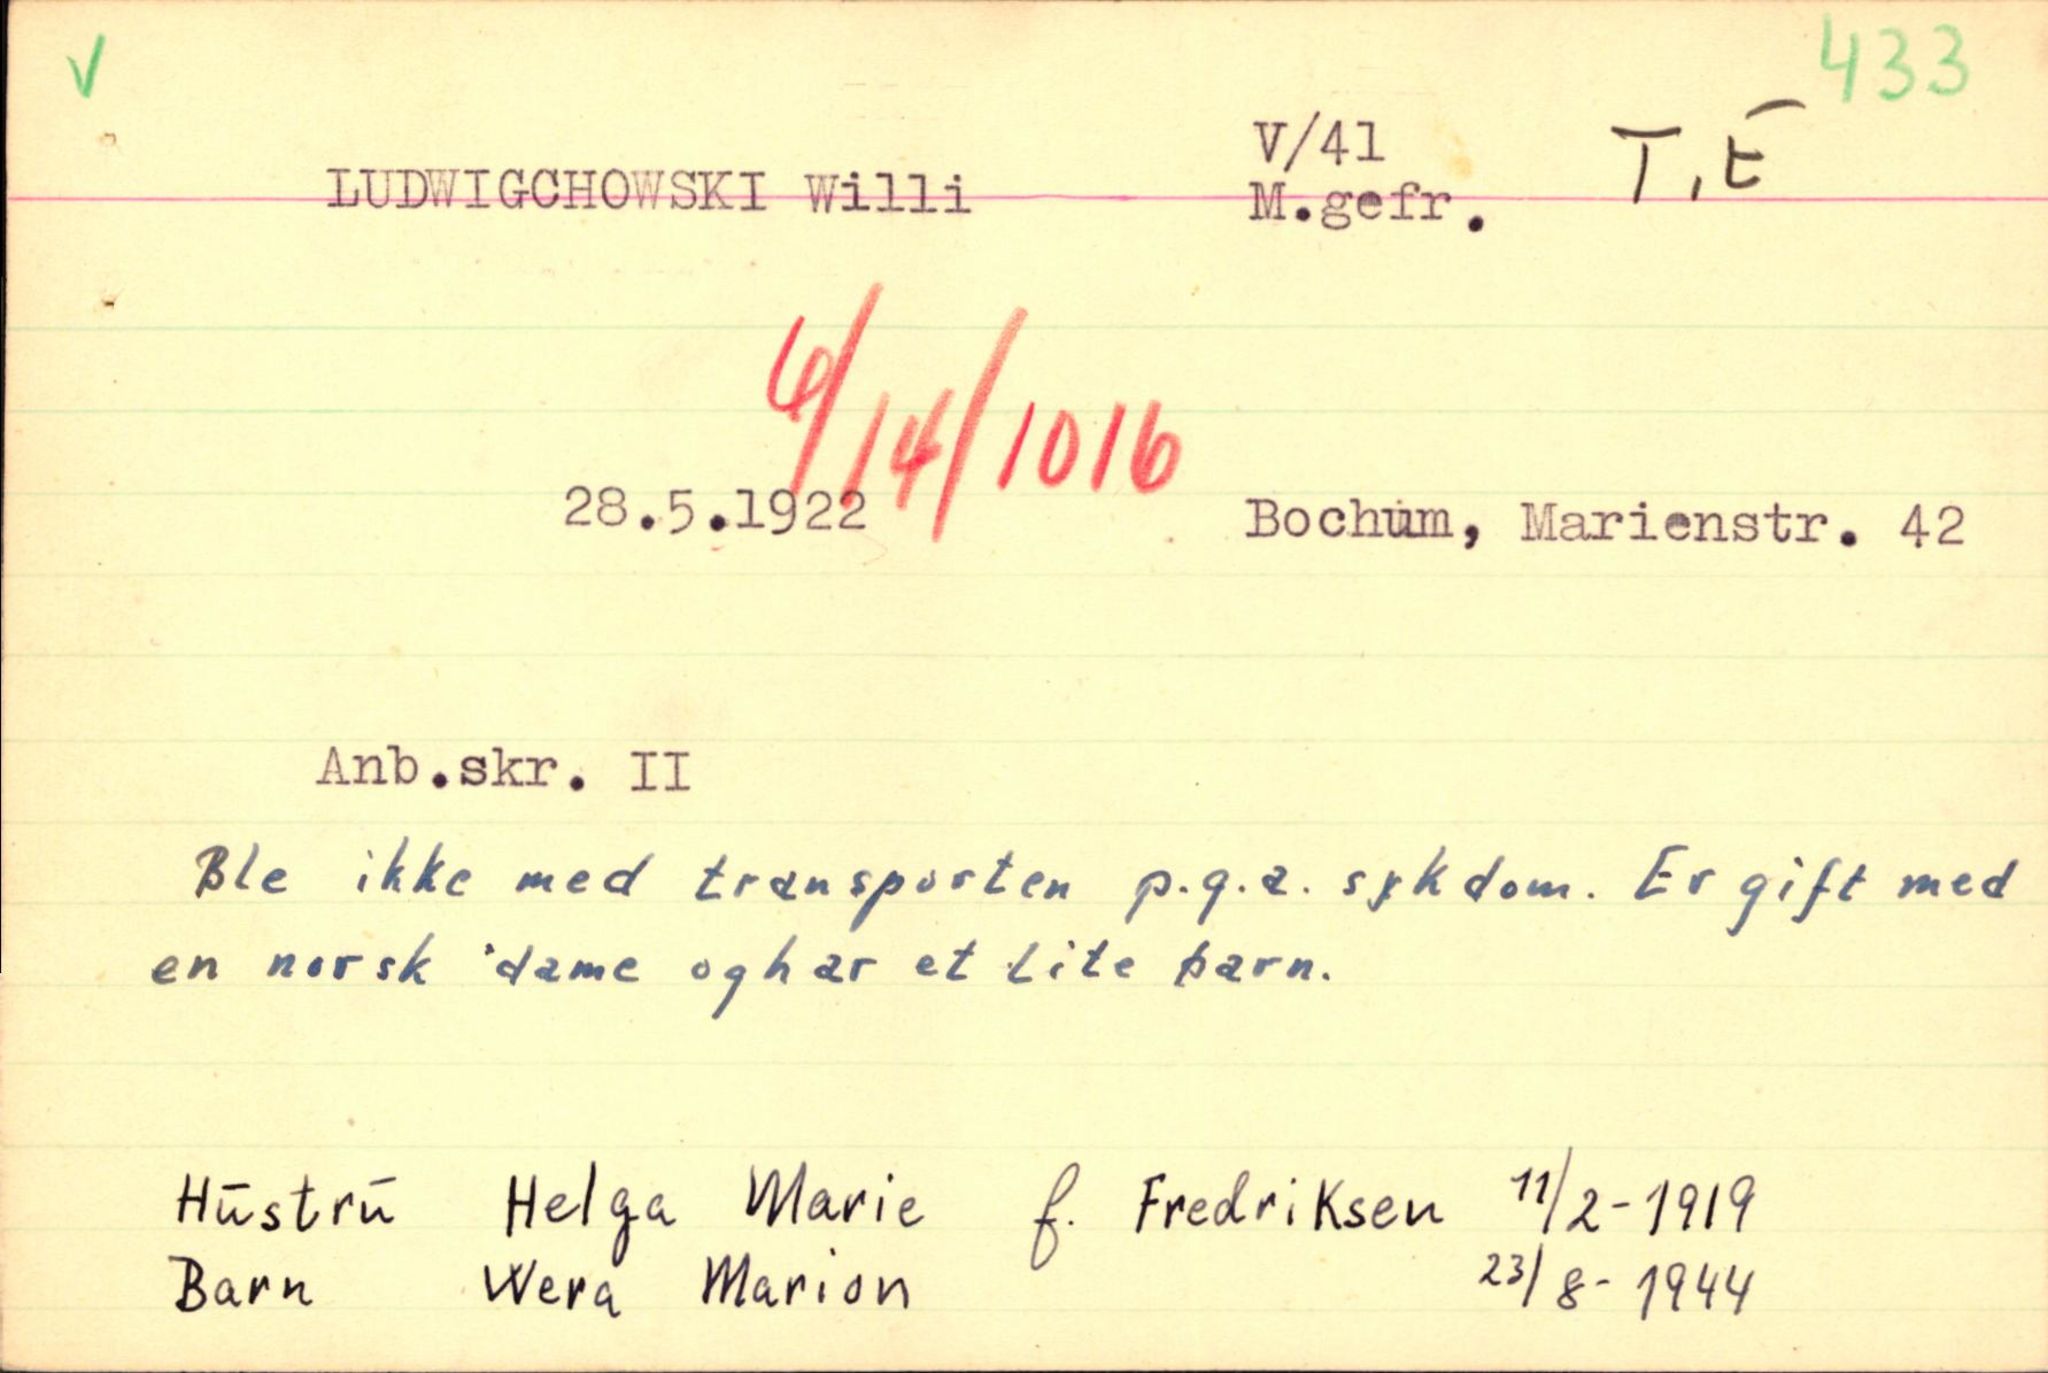 √ 433
V/41 T,E
LUDWIGCHOWSKI Willi M.gefr.
6/14/1016
28.5.1922 Bochum, Marienstr. 42
Anb.skr. II
Ble ikke med transporten p.g.a. sykdom. Er gift med
en norsk dame og har et lite barn.
Hūstrū Helga Marie f. Fredriksen 11/2-1919
Barn Wera Marion 23/8-1944